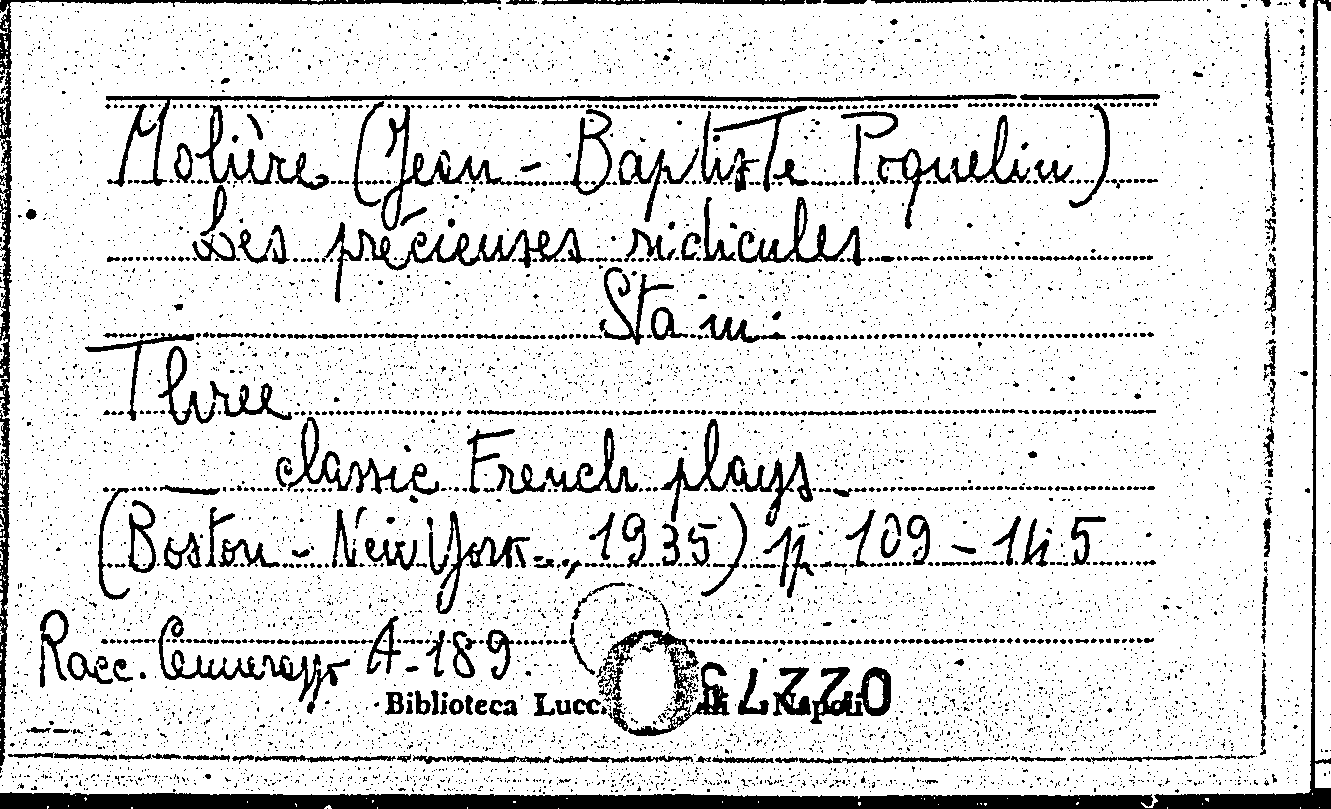 Molière (Jean - Baptiste Poquelin)
Les précieuses ridicules.
Sta in:
Three
classic French plays.
(Boston - New York.., 1935) pp. 109 - 145
Racc. A-189.
Biblioteca Lucc. Napoli